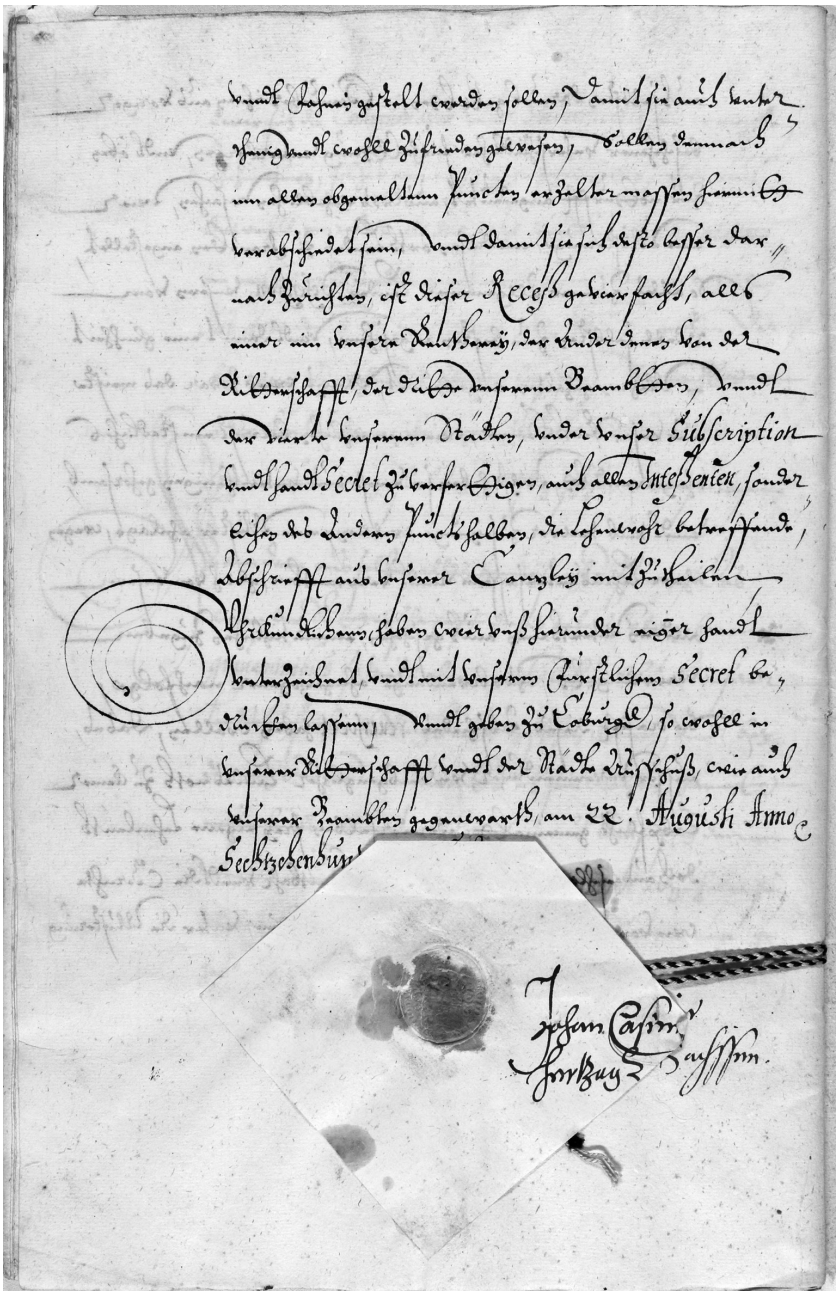 vnndt Fahnen gestelt werden sollen, Damit sie auch vnter
thenig vnndt wohll zufrieden gewesen, Sollen demnach
inn allen obgemeltenn Puncten erzelter massen hiermitt
verabschiedet sein, vnndt damit sie sich desto besser dar„
nach zurichten, ist dieser Recess gevierfacht, alls
einer inn vnsere Rentherey, der Ander denen von der
Ritterschafft, der dritte vnserenn Beambtten, vnndt
der vierte vnserenn Städten, vnder vnser Subscription
vndt handt Secret zu verferttigen, auch allen Inteßenten, sonder
lichen des Andern Puncts halben, die Lehenwahr betreffende,
Abschriefft aus vnserer Cantzley mit zutheilen
Vhrkundlichenn, haben wier vnß hierunder eigēr handt
vnterzeichnet, vndt mit vnserm Fürstlichem Secret be„
drucken lassenn, vnndt geben zu Coburgk, so wohll in
vnserer Ritterschafft vndt der Städte Ausschuß, wie auch
vnserer Beambten gegenwarth, am 22. Augusti Anno
Sechtzehenhun
Johan Casim
Hertzog Z Sachssen.